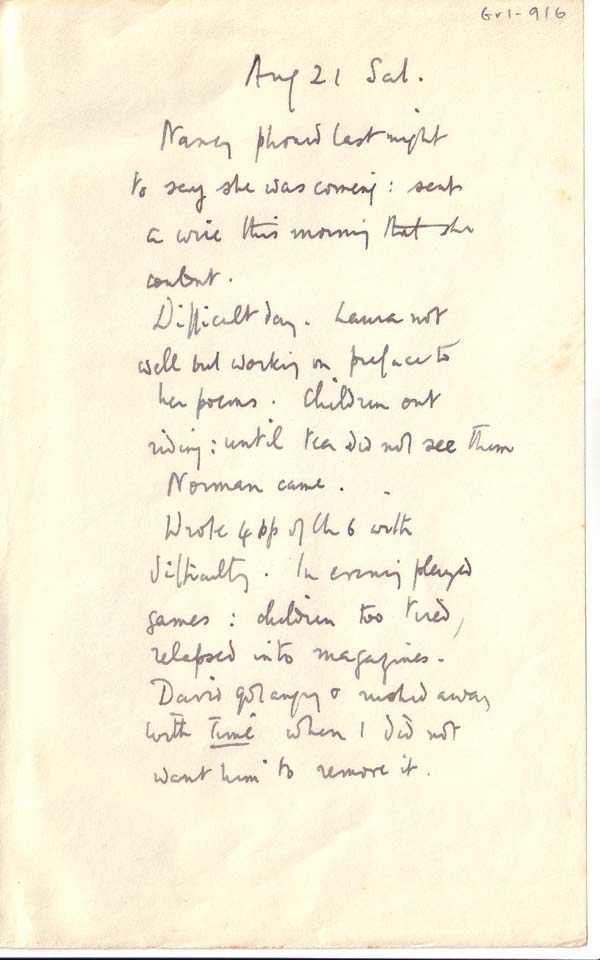 Gr1-916
Aug 21 Sat.
Nancy phoned last night
to say she was coming: sent
a wire this morning that she
couldnt.
Difficult day. Laura not
well but working on preface to
her poems. Children out
riding: until tea did not see them
Norman came.
Wrote 4 pp of Ch 6 with
difficulty. In evening played
games: children too tired,
relapsed into magazines.
David got angry & rushed away
with Time when I did not
want him to remove it.